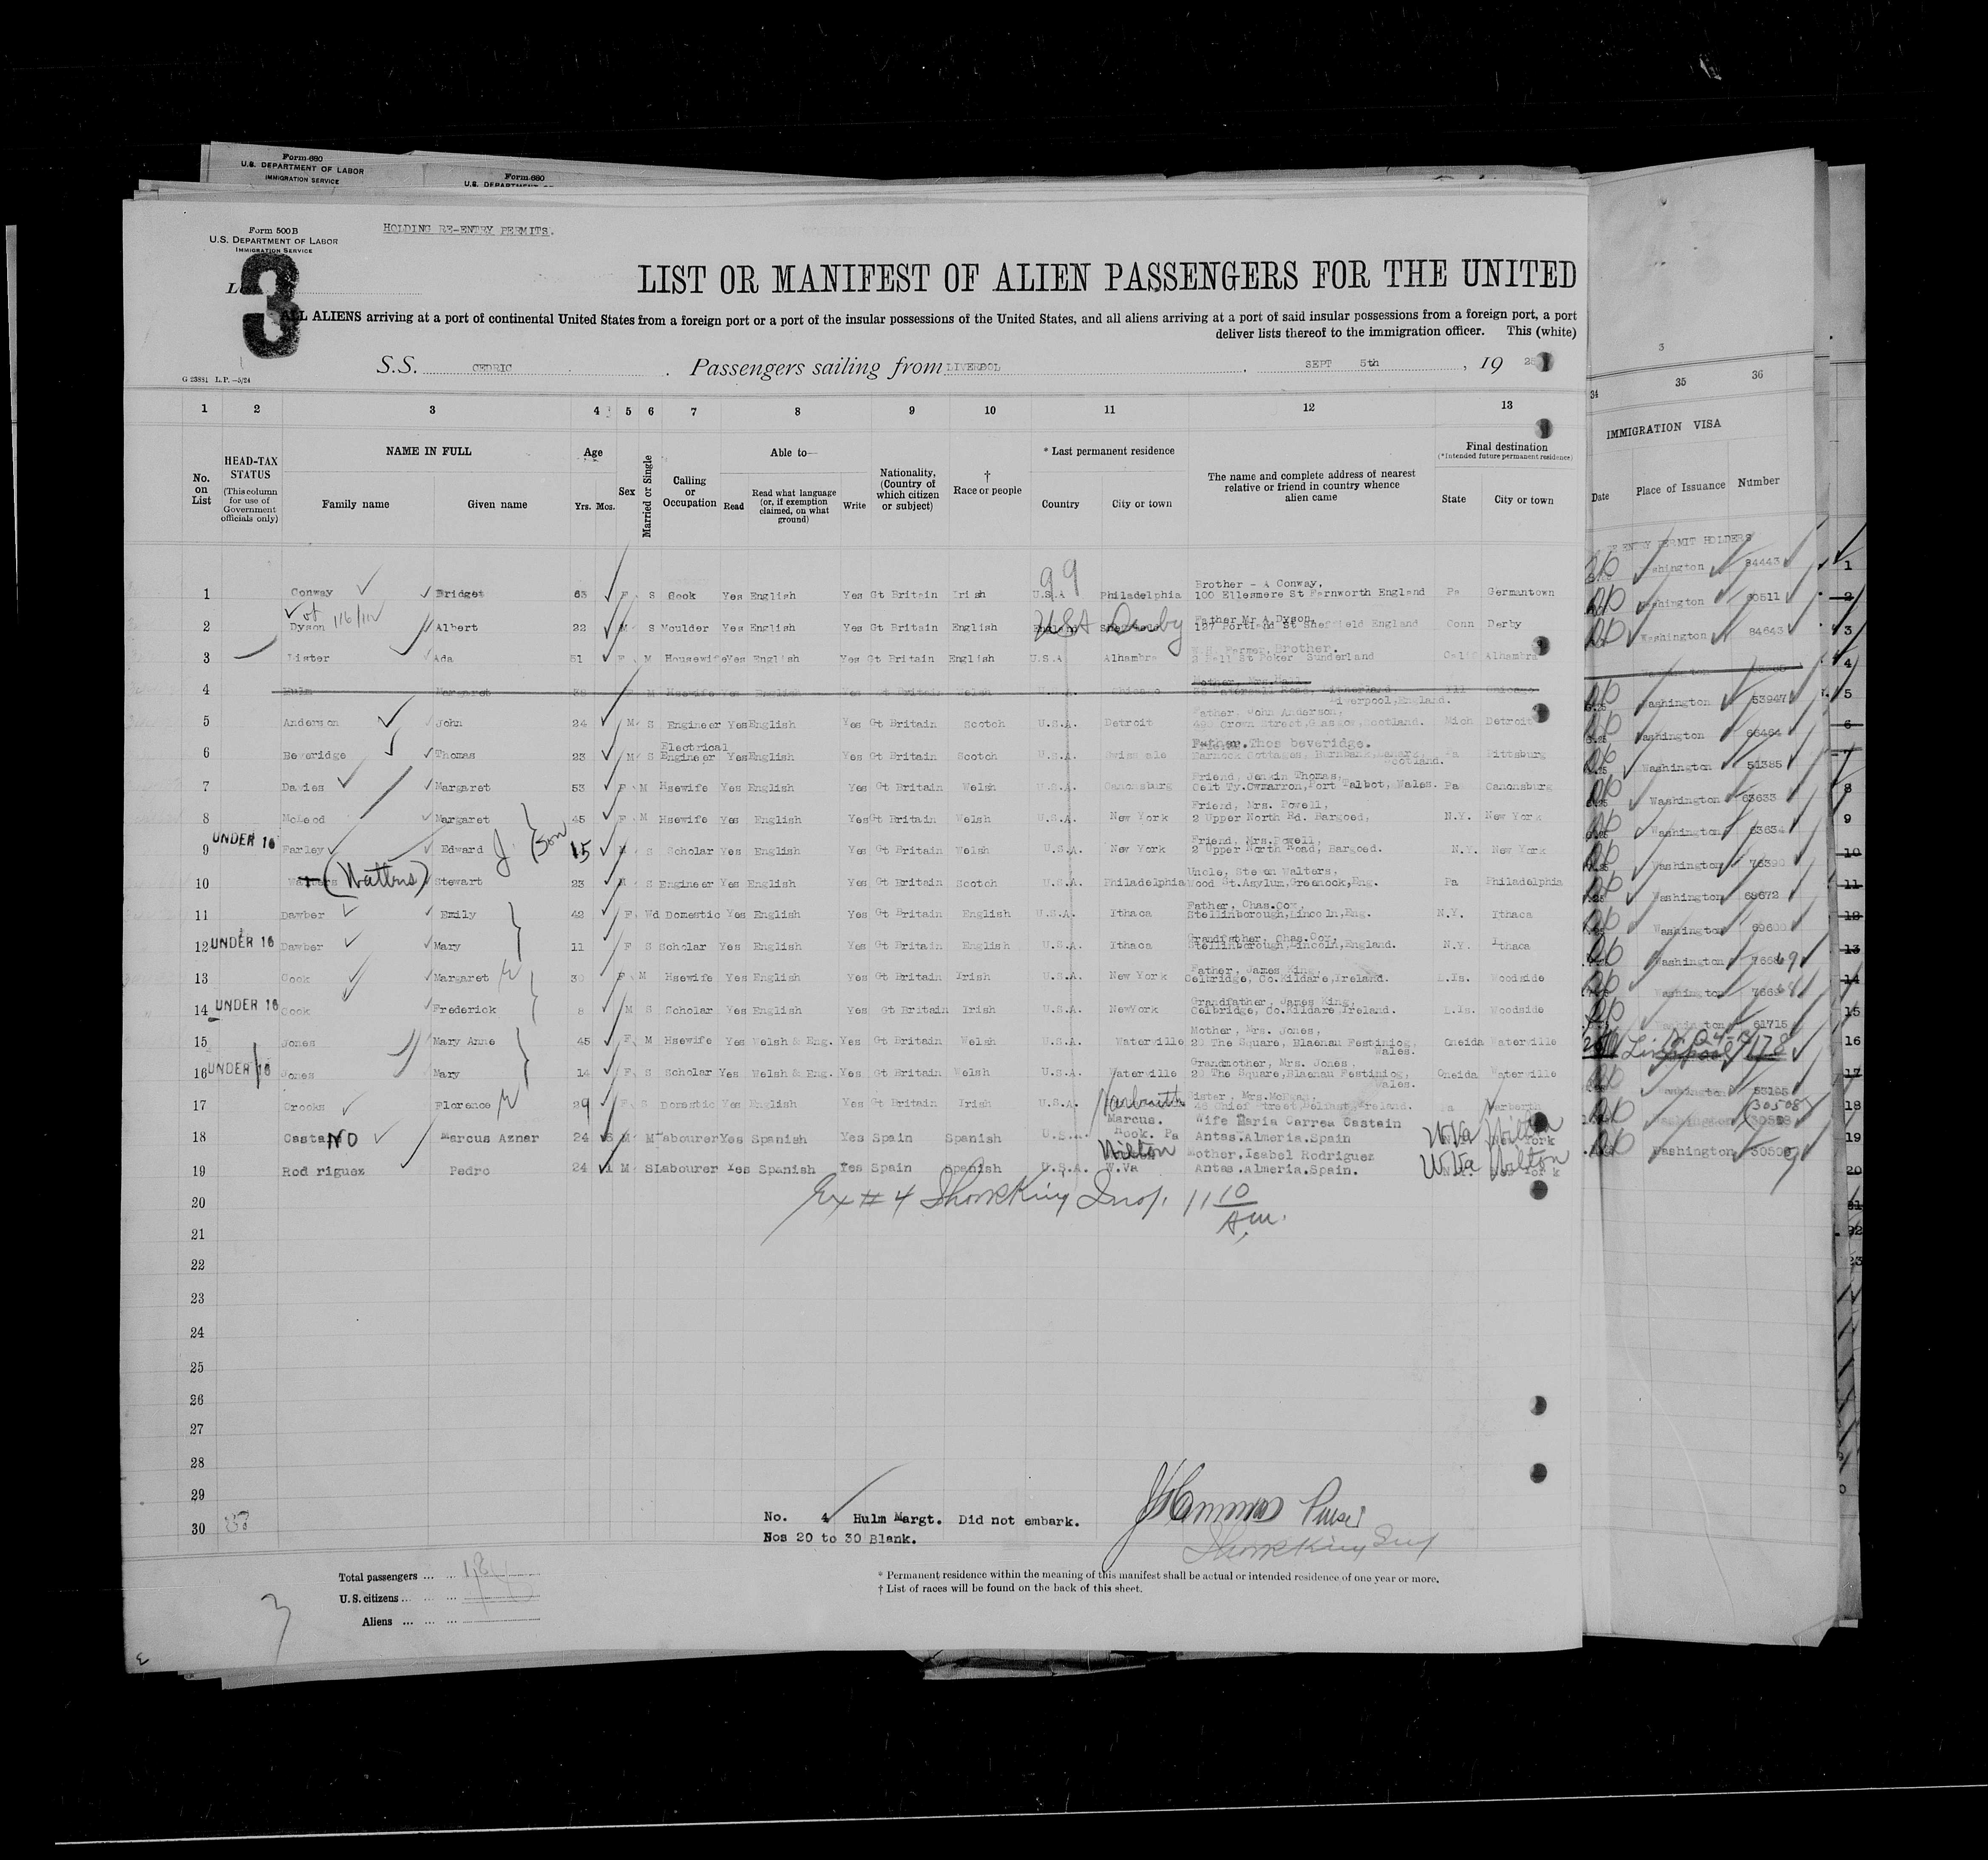 Form 680
U.S. DEPARTMENT OF LABOR
IMMIGRATION SERVICE
Form 680
U.S. DEPARTMENT OF
Form 500 B
U.S. DEPARTMENT OF LABOR
IMMIGRATION SERVICE
HOLDING RE-ENTRY PERMITS.
3
LIST OR MANIFEST OF ALIEN PASSENGERS FOR THE UNITED
ALL ALIENS arriving at a port of continental United States from a foreign port or a port of the insular possessions of the United States, and all aliens arriving at a port of said insular possessions from a foreign port, a port
deliver lists thereof to the immigration officer. This (white)
S.S. CEDRIC . Passengers sailing from LIVERPOOL , SEPT 5th , 19
G 23881 L.P.—5/24
1 2 3 4 5 6 7 8 9 10 11 12 13
No. on List
HEAD-TAX STATUS (This column for use of Government officials only)
NAME IN FULL
Family name Given name
Age
Yrs. Mos.
Sex
Married or Single
Calling or Occupation
Able to—
Read
Read what language (or, if exemption claimed, on what ground)
Write
Nationality, (Country of which citizen or subject)
† Race or people
* Last permanent residence
Country City or town
The name and complete address of nearest relative or friend in country whence alien came
Final destination
(*Intended future permanent residence)
State City or town
99
1 Conway Bridget 63 F S Cook Yes English Yes Gt Britain Irish U.S.A Philadelphia Brother - A Conway, 100 Ellesmere St Farnworth England Pa Germantown
2 Dyson Albert 22 M S Moulder Yes English Yes Gt Britain English USA Derby Father Mr A.Dyson, 127 Portland St Sheffield England Conn Derby
3 Lister Ada 51 F M Housewife Yes English Yes Gt Britain English U.S.A Alhambra Brother. Sunderland Alhambra
4 Hulm Margaret M Hsewife Yes English Yes Gt Britain Welsh Chicago Liverpool,England. Ill Chicago
5 Anderson John 24 M S Engineer Yes English Yes Gt Britain Scotch U.S.A. Detroit Father, John Anderson, Crown Street,Glasgow,Scotland. Mich Detroit
6 Beveridge Thomas 23 M S Electrical Engineer Yes English Yes Gt Britain Scotch U.S.A. Father.Thos beveridge. Cottages, Burnbank, Scotland. Pa Pittsburg
7 Davies Margaret 53 F M Hsewife Yes English Yes Gt Britain Welsh U.S.A. Canonsburg Friend, Jenkin Thomas, Celt Ty.Cwmarron,Port Talbot, Wales. Pa Canonsburg
8 McLeod Margaret 45 F M Hsewife Yes English Yes Gt Britain Welsh U.S.A. New York Friend, Mrs. Powell, 2 Upper North Rd. Bargoed, N.Y. New York
UNDER 16
9 Farley Edward J. Son 15 M S Scholar Yes English Yes Gt Britain Welsh U.S.A. New York Friend, Mrs.Powell, 2 Upper North Road, Bargoed. N.Y. New York
10 (Watters) Stewart 23 M S Engineer Yes English Yes Gt Britain Scotch U.S.A. Philadelphia Uncle, Walters, Wood St.Asylum,Greenock,Eng. Pa Philadelphia
11 Dawber Emily 42 F Wd Domestic Yes English Yes Gt Britain English U.S.A. Ithaca Father, Chas.Cox, Stellinborough,Lincoln,Eng. N.Y. Ithaca
12 UNDER 16 Dawber Mary 11 F S Scholar Yes English Yes Gt Britain English U.S.A. Ithaca Grandfather, Chas.Cox, Stellinborough,Lincoln,England. N.Y. Ithaca
13 Cook Margaret 30 F M Hsewife Yes English Yes Gt Britain Irish U.S.A. New York Father, James King, Celbridge, Co.Kildare,Ireland. L.Is. Woodside
14 UNDER 16 Cook Frederick 8 M S Scholar Yes English Yes Gt Britain Irish U.S.A. NewYork Grandfather, James King, Celbridge, Co.Kildare Ireland. L.Is. Woodside
15 Jones Mary Anne 45 F M Hsewife Yes Welsh & Eng. Yes Gt Britain Welsh U.S.A. Waterville Mother, Mrs. Jones, 20 The Square, Blaenau Festiniog, Wales. Oneida Waterville
16 UNDER 16 Jones Mary 14 F S Scholar Yes Welsh & Eng. Yes Gt Britain Welsh U.S.A. Waterville Grandmother, Mrs. Jones, 20 The Square,Blaenau Festiniog, Wales. Oneida Waterville
17 Crooks Florence 29 F S Domestic Yes English Yes Gt Britain Irish U.S.A. Sister, Street,Belfast,Ireland. Pa Narberth
18 CastaNO Marcus Aznar 24 6 M M Labourer Yes Spanish Yes Spain Spanish U.S.A. Marcus. Hook. Pa Wife Maria Carrea Castain Antas.Almeria.Spain W.Va Milton
19 Rodriguez Pedro 24 1 M S Labourer Yes Spanish Yes Spain Spanish U.S.A. Milton W.Va Mother.Isabel Rodriguez Antas.Almeria.Spain. W.Va Milton
20
Ex # 4 Insp. 11 10 A.M.
21
22
23
24
25
26
27
28
29
30
No. 4 Hulm Margt. Did not embark.
Nos 20 to 30 Blank.
Purser
Total passengers ... ... 18
U.S. citizens ... ... ...
Aliens ... ... ...
* Permanent residence within the meaning of this manifest shall be actual or intended residence of one year or more.
† List of races will be found on the back of this sheet.
3
3
34 35 36
IMMIGRATION VISA
Date Place of Issuance Number
RE ENTRY PERMIT HOLDERS
Washington 84443
Washington 80511
Washington 84643
Washington 53947
Washington 66464
Washington 51385
Washington 63633
Washington 63634
Washington 76390
Washington 68672
Washington 69600
Washington
Washington
Washington 61715
Liverpool 178
Washington
Washington (30508)
Washington 30509
1
2
3
4
5
6
7
8
9
10
11
12
13
14
15
16
17
18
19
20
21
22
23